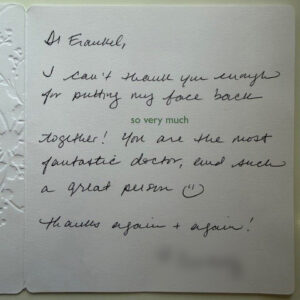 Dr Frankel,
I can't thank you enough
for putting my face back
so very much
together! You are the most
fantastic doctor, and such
a great person
thanks again + again!